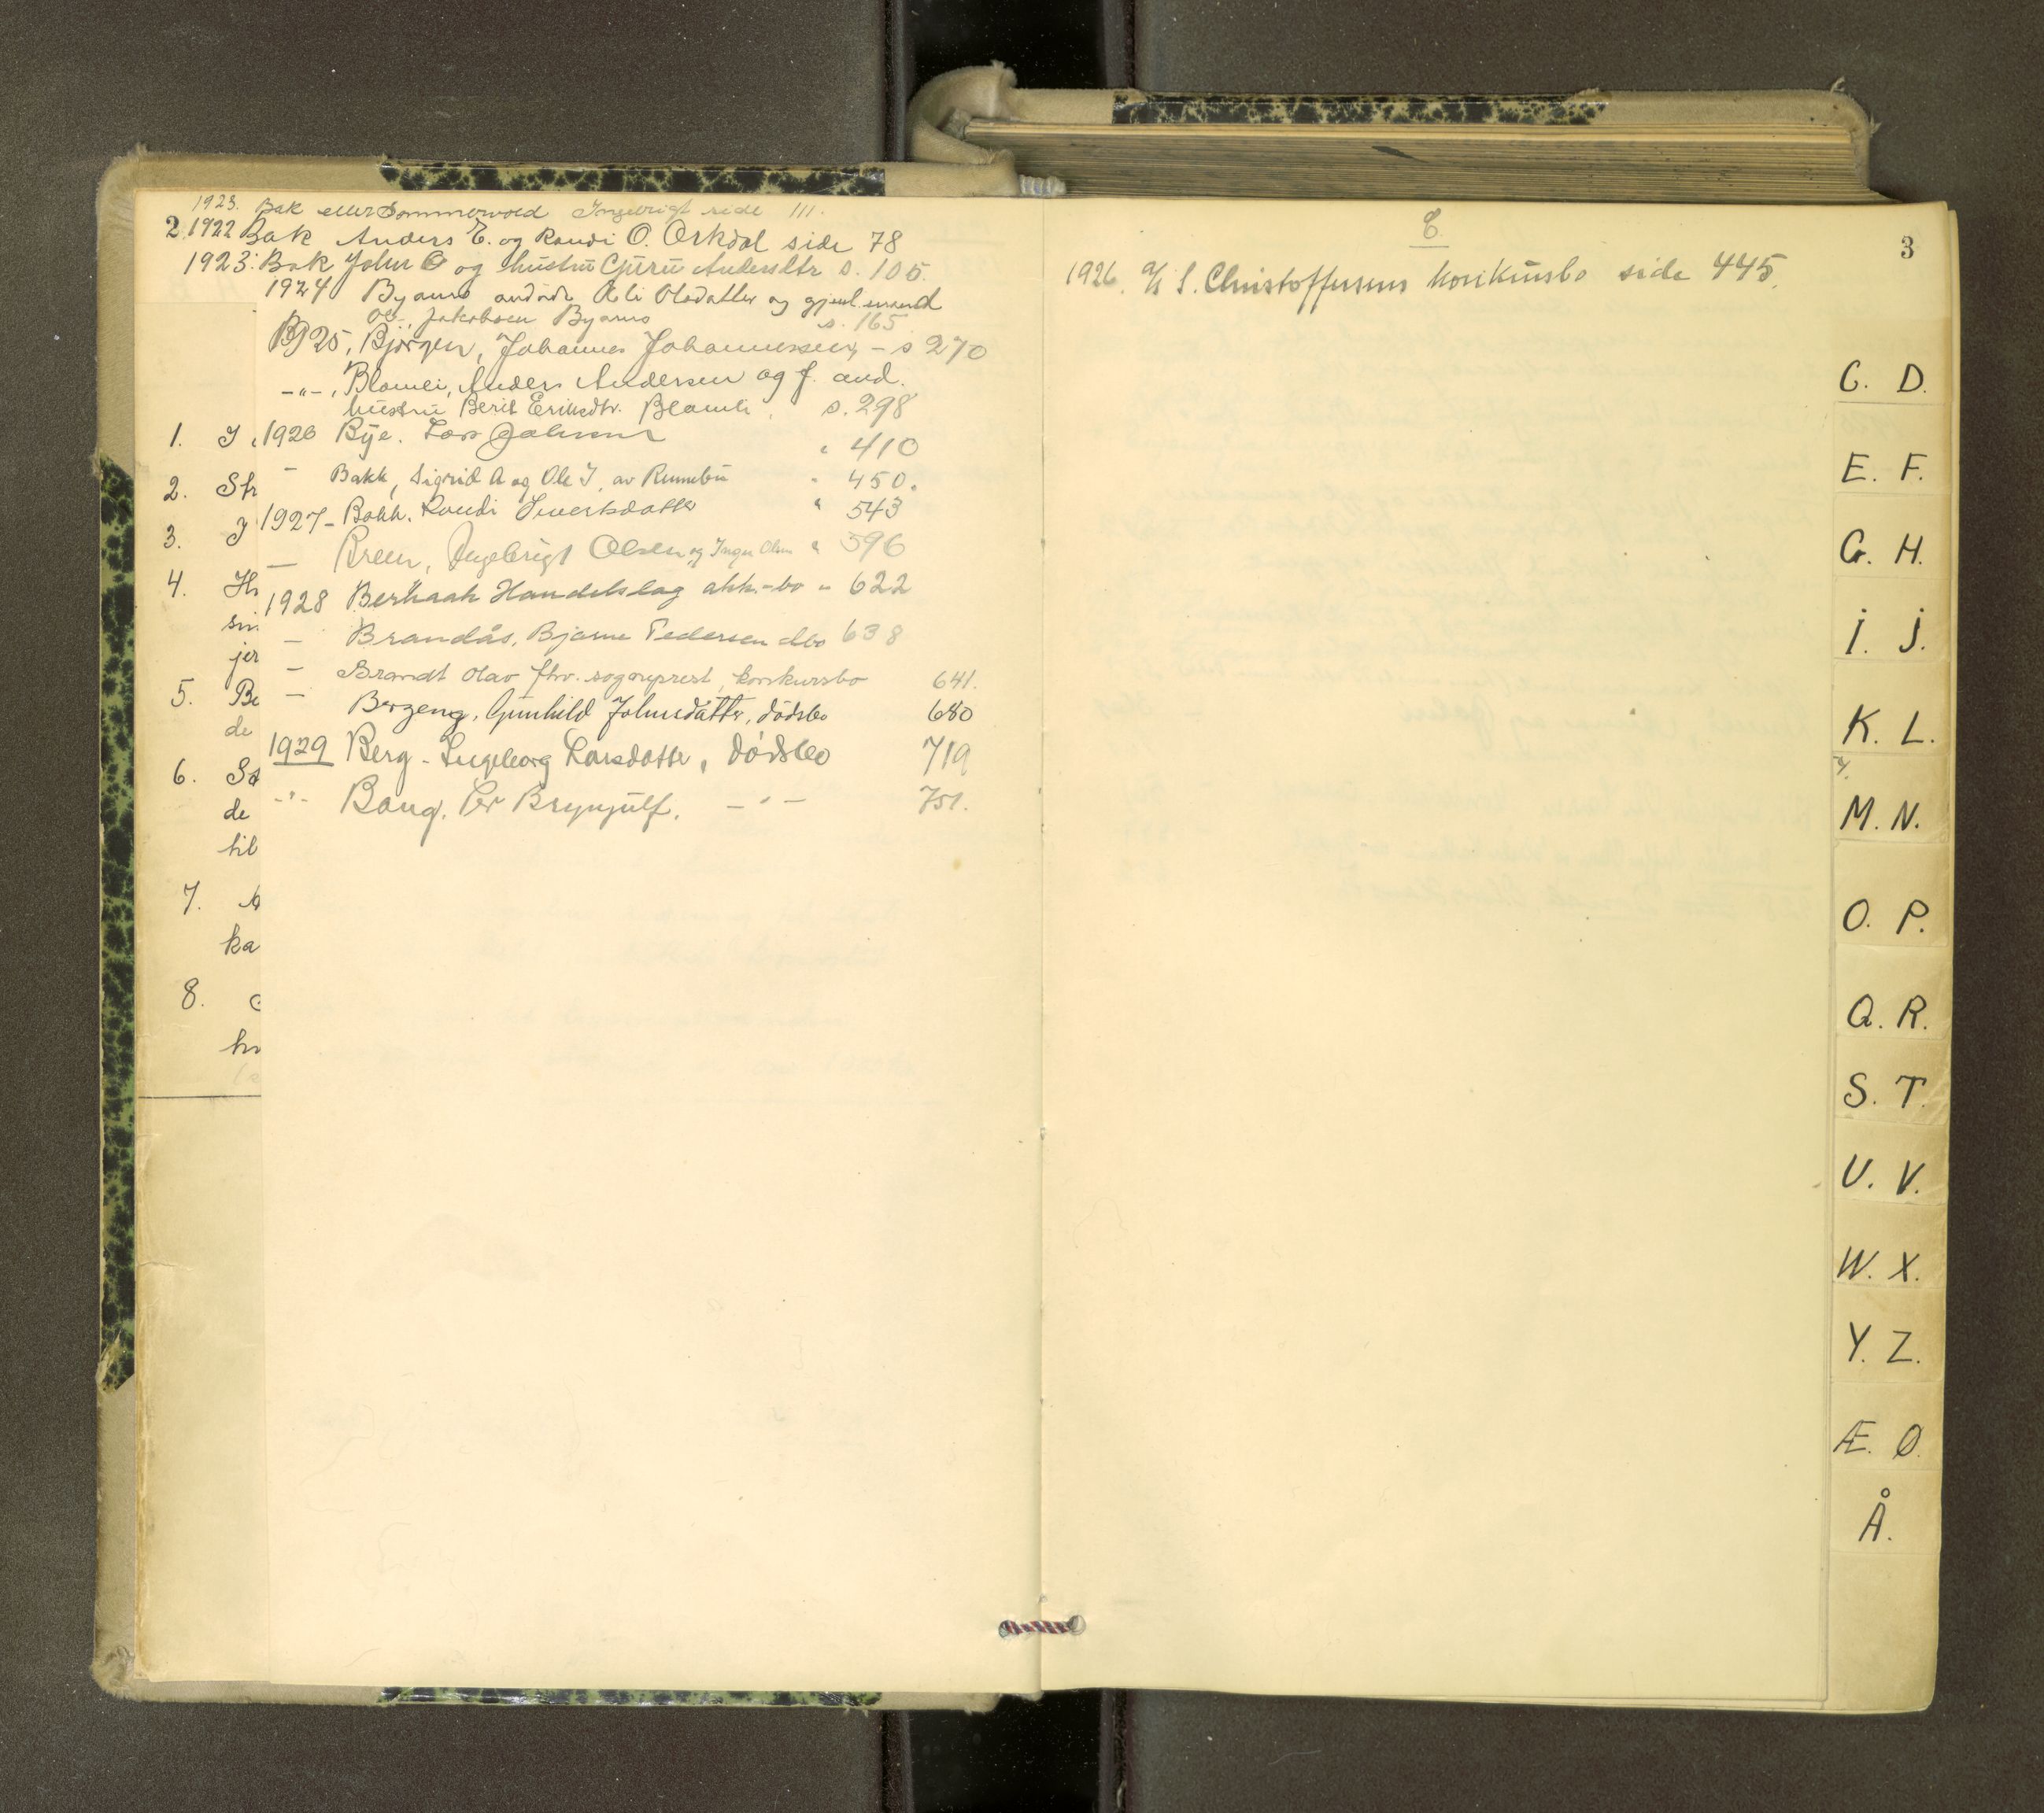 1923. Bak eller Sommervold Ingebrigt side 111.
2
1922 Bak Anders E. og Randi O. Orkdal side 78
1923. Bak John O og hustru Guru Andersdtr s. 105.
1924 Byamo avdøde Eli Olsdatter og gjenl. mand
Ole Jakobsen Byamo s. 165
1925, Bjørgen, Johannes Johannessen, - s 270
-"-, Blomli, Anders Andersen og f. avd.
hustru Berit Eriksdtr. Blomli, s. 298
1926 Bye. Lars Johnsen " 410
- Bakk, Sigrid A og Ole J. av Rennebu " 450.
1927- Bakk. Randi Sivertsdatter " 543
- Breen, Ingebrigt Olsen og Inger Olsen " 596
1928 Berkaak Handelslag akk.-bo " 622
- Brandås, Bjarne Pedersen dbo 638
- Brandt Olav fhv. sogneprest, konkursbo 641.
- Bergeng, Gunhild Johnsdatter, dødsbo 680
1929 Berg - Ingeborg Larsdatter, dødsbo 719
-"- Bang, Per Brynjulf. -"- 751.
1. I
2. St
3. I
4. H
sin
jer
5. Be
de
6. Sø
de
til
7.
ka
8.
C
3
1926. A/S S. Christoffersens konkursbo side 445.
C. D.
E. F.
G. H.
I. J.
K. L.
M. N.
O. P.
Q. R.
S. T.
U. V.
W. X.
Y. Z.
Æ. Ø.
Å.